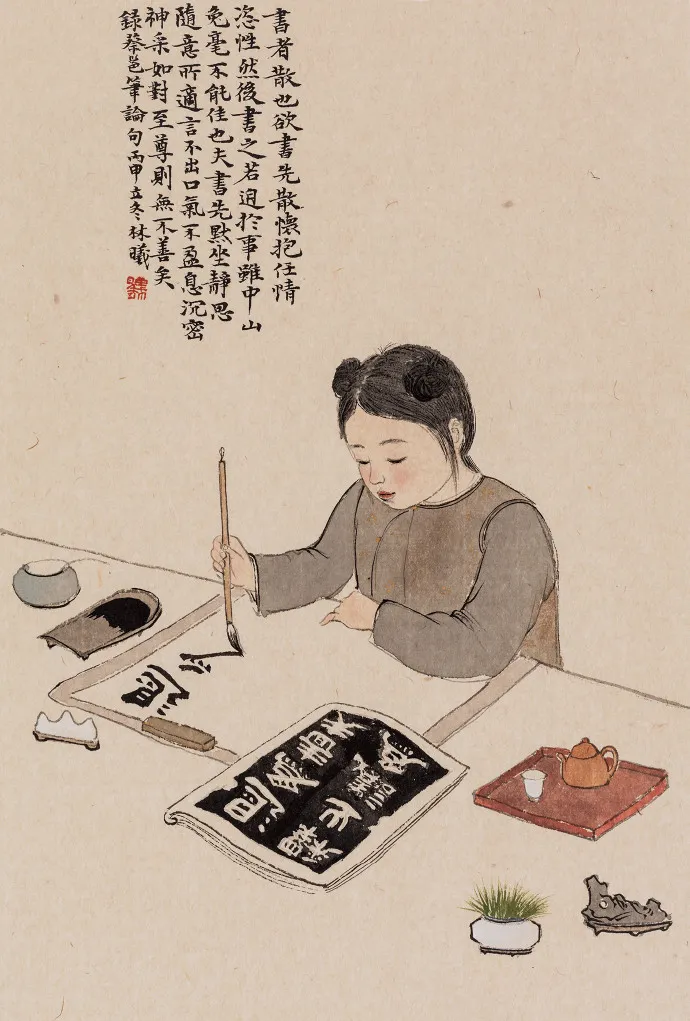 書者散也欲書先散懷抱任情
恣性然後書之若迫於事雖中山
兔毫不能佳也夫書先默坐靜思
隨意所適言不出口氣不盈息沉密
神采如對至尊則無不善矣
錄蔡邕筆論句丙申立冬林曦